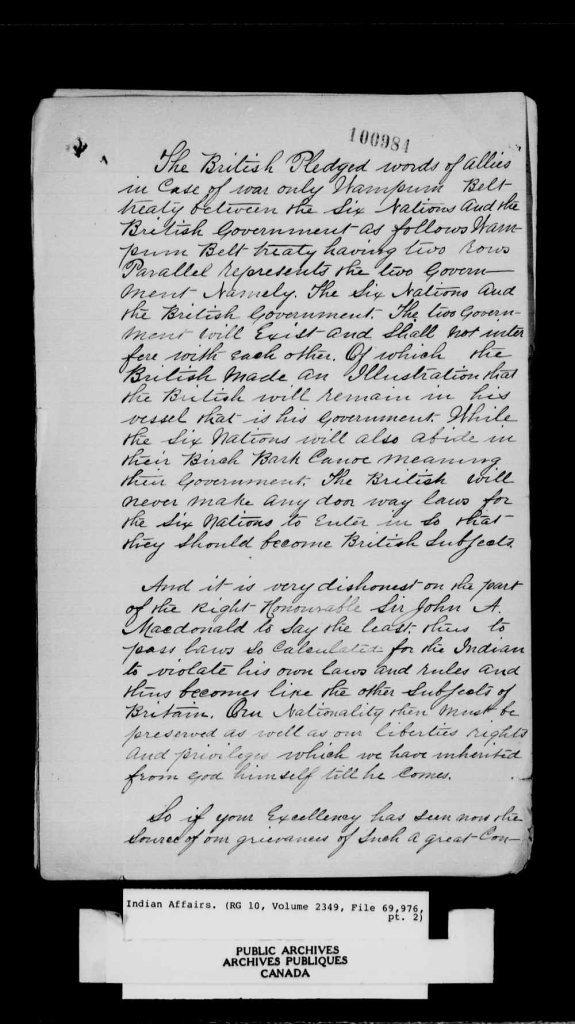 100984
The British Pledged words of allies
in Case of war only Wampum Belt
treaty between the Six Nations and the
British Government as follows Wam-
pum Belt treaty having two rows
Parallel represents the two Govern-
ment Namely. The Six Nations and
the British Government. The two Govern-
ment will Exist and Shall not inter
fere with each other. Of which the
British Made an Illustration that
the British will remain in his
vessel that is his Government. While
the Six Nations will also abide in
their Birch Bark Canoe meaning
their Government. The British will
never make any door way laws for
the Six Nations to Enter in so that
they should become British Subjects.
And it is very dishonest on the part
of the Right Honourable Sir John A.
Macdonald to Say the least. thus to
pass laws so Calculated for the Indian
to violate his own laws and rules and
thus becomes like the other Subjects of
Britain. Our Nationality then must be
preserved as well as our liberties rights
and privileges which we have inherited
from God himself till he Comes.
So if your Excellency has seen now the
Source of our grievances of Such a great Con-
Indian Affairs. (RG 10, Volume 2349, File 69,976,
pt. 2)
PUBLIC ARCHIVES
ARCHIVES PUBLIQUES
CANADA